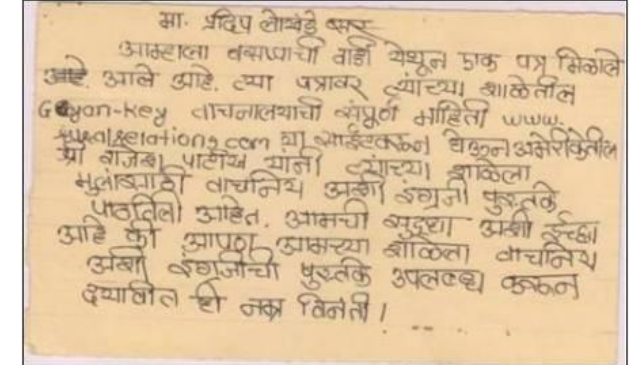 मा. प्रदिप लोखंडे सर
आम्हाला बसप्पाची वाडी येथून एक पत्र मिळाले
आहे. आले आहे. त्या पत्रावर त्यांच्या शाळेतील
Gyan-key वाचनालयाची संपूर्ण माहिती www.
ruralrelations.com या साईटवरून घेऊन अमेरिकेतील
श्री राजेश पाटील यांनी त्यांच्या शाळेला
मुलांसाठी वाचनिय अशी इंग्रजी पुस्तके
पाठविली आहेत. आमची सुद्धा अशी ईच्छा
आहे की आपण आमच्या शाळेला वाचनिय
अशी इंग्रजीची पुस्तके उपलब्ध करून
द्यावीत ही नम्र विनंती!